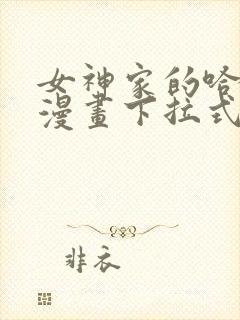 女神家的哈
漫畫下拉式
非衣